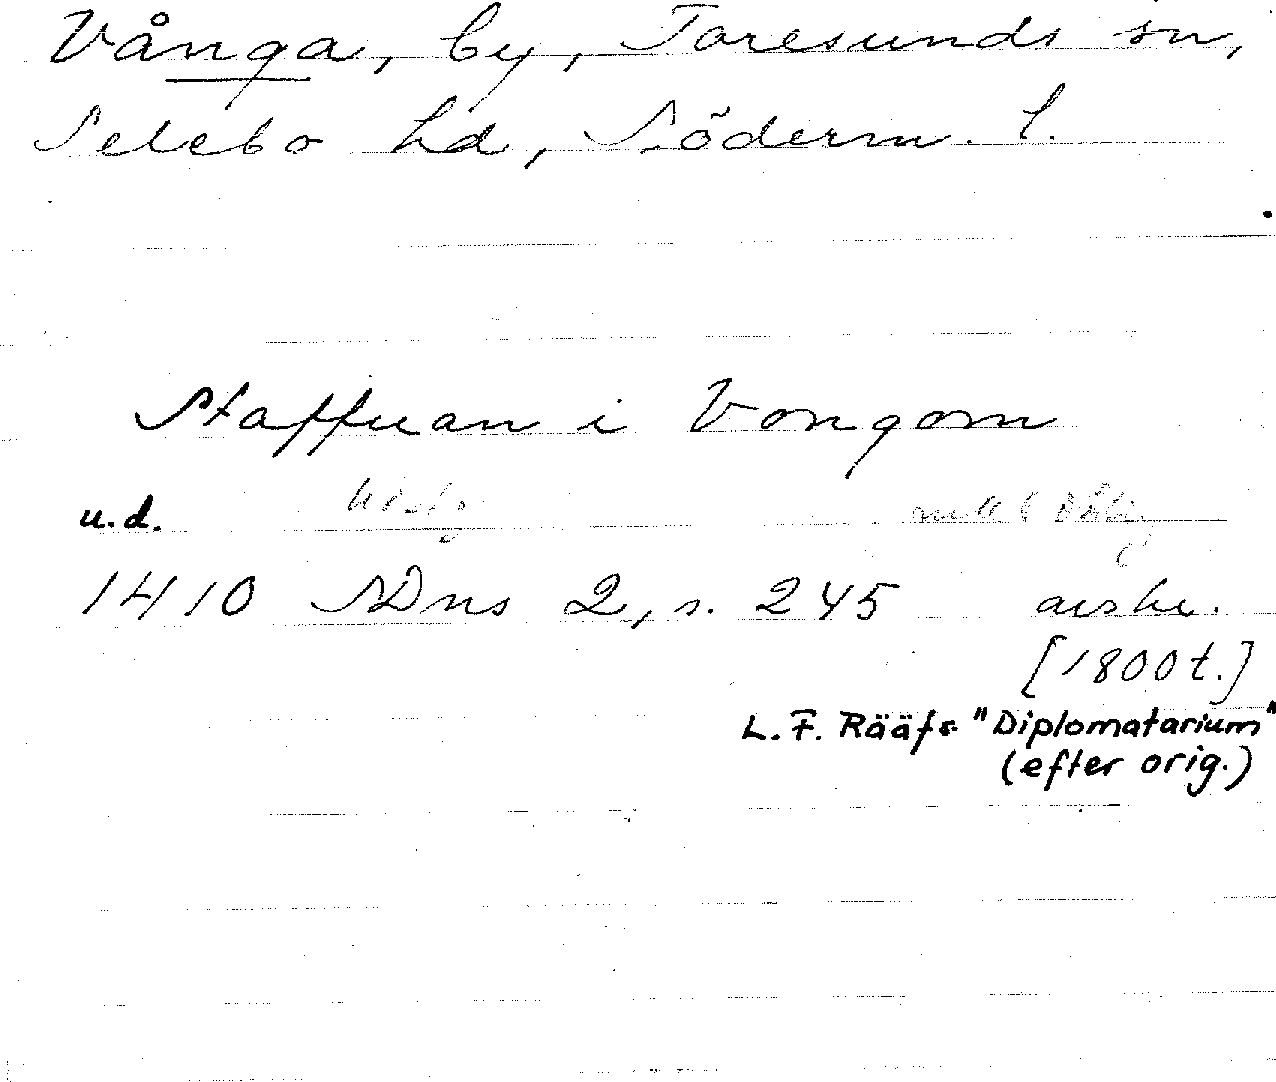 Vånga, by, Toresunds sn,
Selebo hd, Söderm. l.
Staffuan i Vongom
u.d.
1410 SDns 2, s. 245 avskr.
[1800 t.]
L. F. Rääfs "Diplomatarium"
(efter orig.)